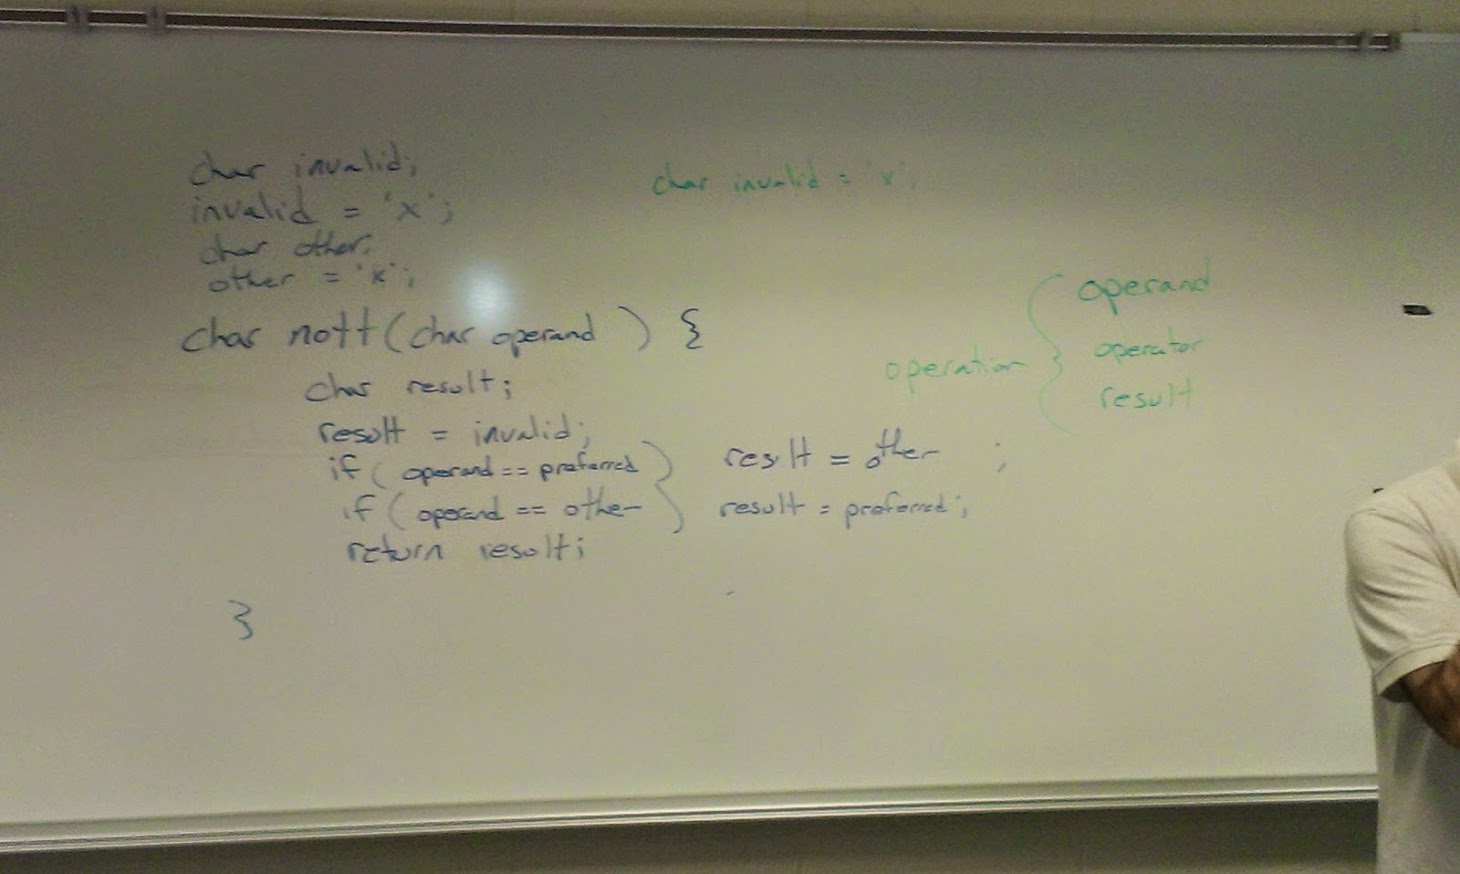 char invalid;
invalid = 'x';
char other;
other = 'k';
char nott(char operand) {
char result;
result = invalid;
if (operand == preferred) result = other ;
if (operand == other) result = preferred;
return result;
}
char invalid = 'x';
operation {
operand
operator
result